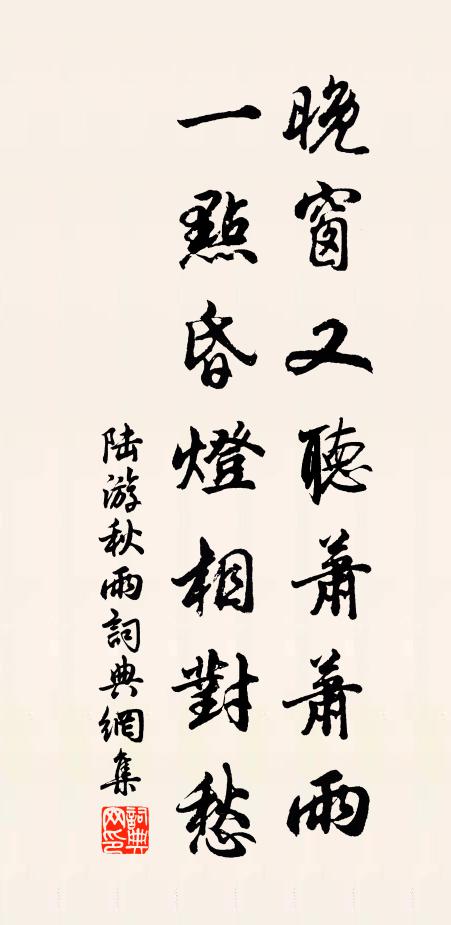 晚窗又聽蕭蕭雨
一點昏燈相對愁
陆游秋雨詞典網集
詞典
网印